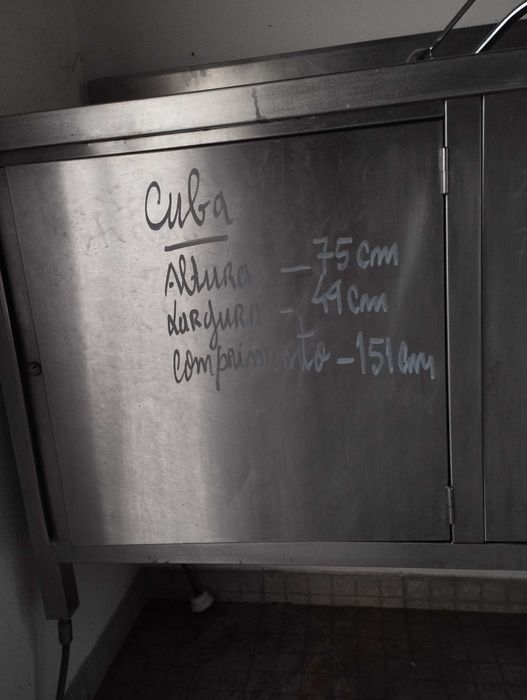 Cuba
Altura - 75 cm
Largura - 49 cm
comprimento - 151 cm